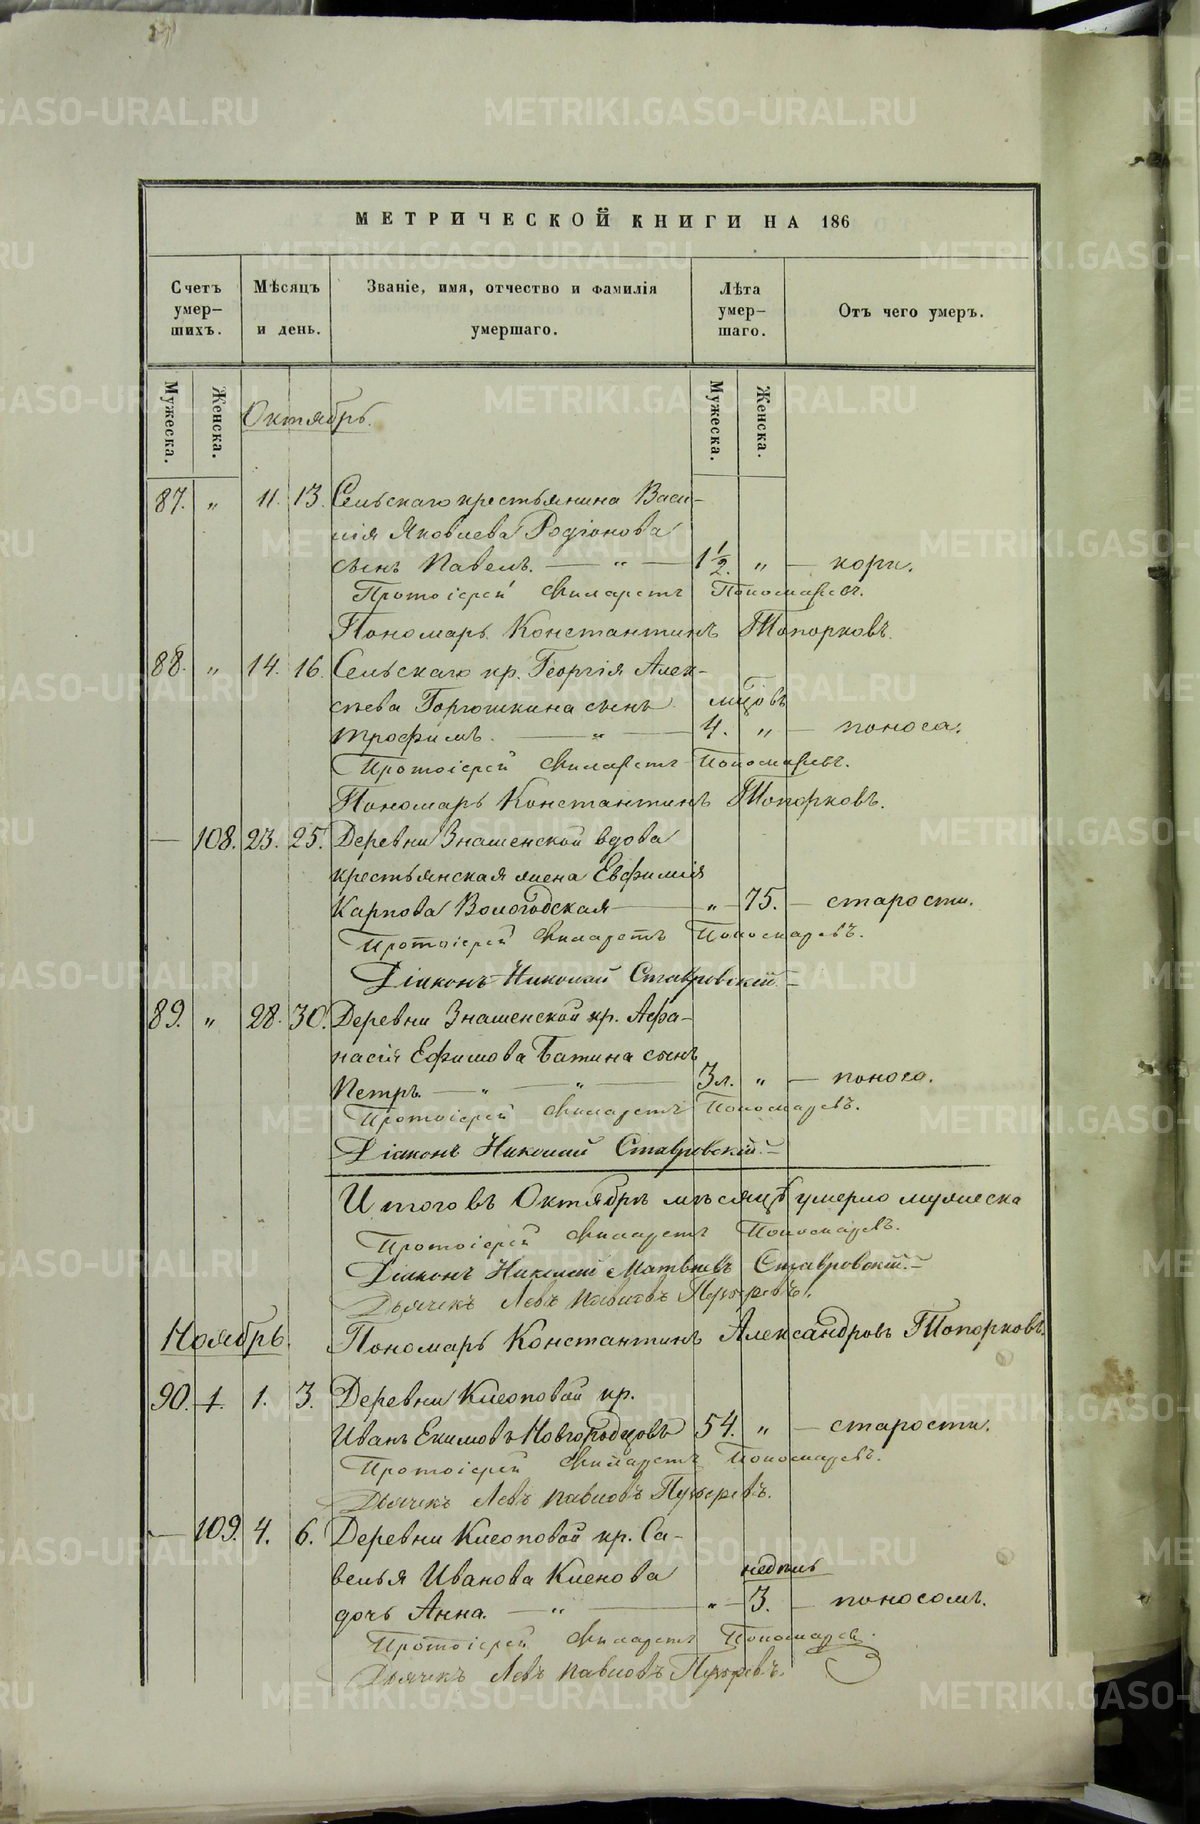 МЕТРИЧЕСКОЙ КНИГИ НА 186
Счетъ умер– шихъ.
Мѣсяцъ и день.
Званіе, имя, отчество и фамилія умершаго.
Лѣта умер– шаго.
Отъ чего умеръ.
Мужеска. Женска. Мужеска. Женска.
Октябрь.
87. „ 11. 13. Сельскаго крестьянина Васи–
лія Яковлева Родіонова
сынъ Павелъ. — „ — 1½. „ — кори.
Протоіерей Филаретъ Пономаревъ.
Пономарь Константинъ Топорковъ.
88. „ 14. 16. Сельскаго кр. Георгія Алек–
сѣева Горюшкина сынъ мцовъ
Трофимъ. — „ — 4. „ — поноса.
Протоіерей Филаретъ Пономаревъ.
Пономарь Константинъ Топорковъ.
— 108. 23. 25. Деревни Знаменской вдова
крестьянская жена Евфимія
Карпова Вологодская — „ — 75. — старости.
Протоіерей Филаретъ Пономаревъ.
Діаконъ Николай Ставровскій. –
89. „ 28. 30. Деревни Знаменской кр. Афа–
насія Ефимова Батина сынъ
Петръ. — „ — „ — 3 л. „ — поноса.
Протоіерей Филаретъ Пономаревъ.
Діаконъ Николай Ставровскій. –
Итого въ Октябрѣ мѣсяцѣ умерло мужеска
Протоіерей Филаретъ Пономаревъ.
Діаконъ Николай Матвѣевъ Ставровскій. –
Дьячекъ Левъ Павловъ
Ноябрь. Пономарь Константинъ Александровъ Топорковъ.
90. 1. 3. Деревни Клеоповой кр.
Иванъ Екимовъ Новгородцовъ 54. „ — старости.
Протоіерей Филаретъ Пономаревъ.
Дьячекъ Левъ Павловъ
— 109. 4. 6. Деревни Клеоповой кр. Са–
велья Иванова Клепова недѣль
дочь Анна. — „ — „ — 3. — поносомъ.
Протоіерей Филаретъ Пономаревъ.
Дьячекъ Левъ Павловъ
METRIKI.GASO-URAL.RU